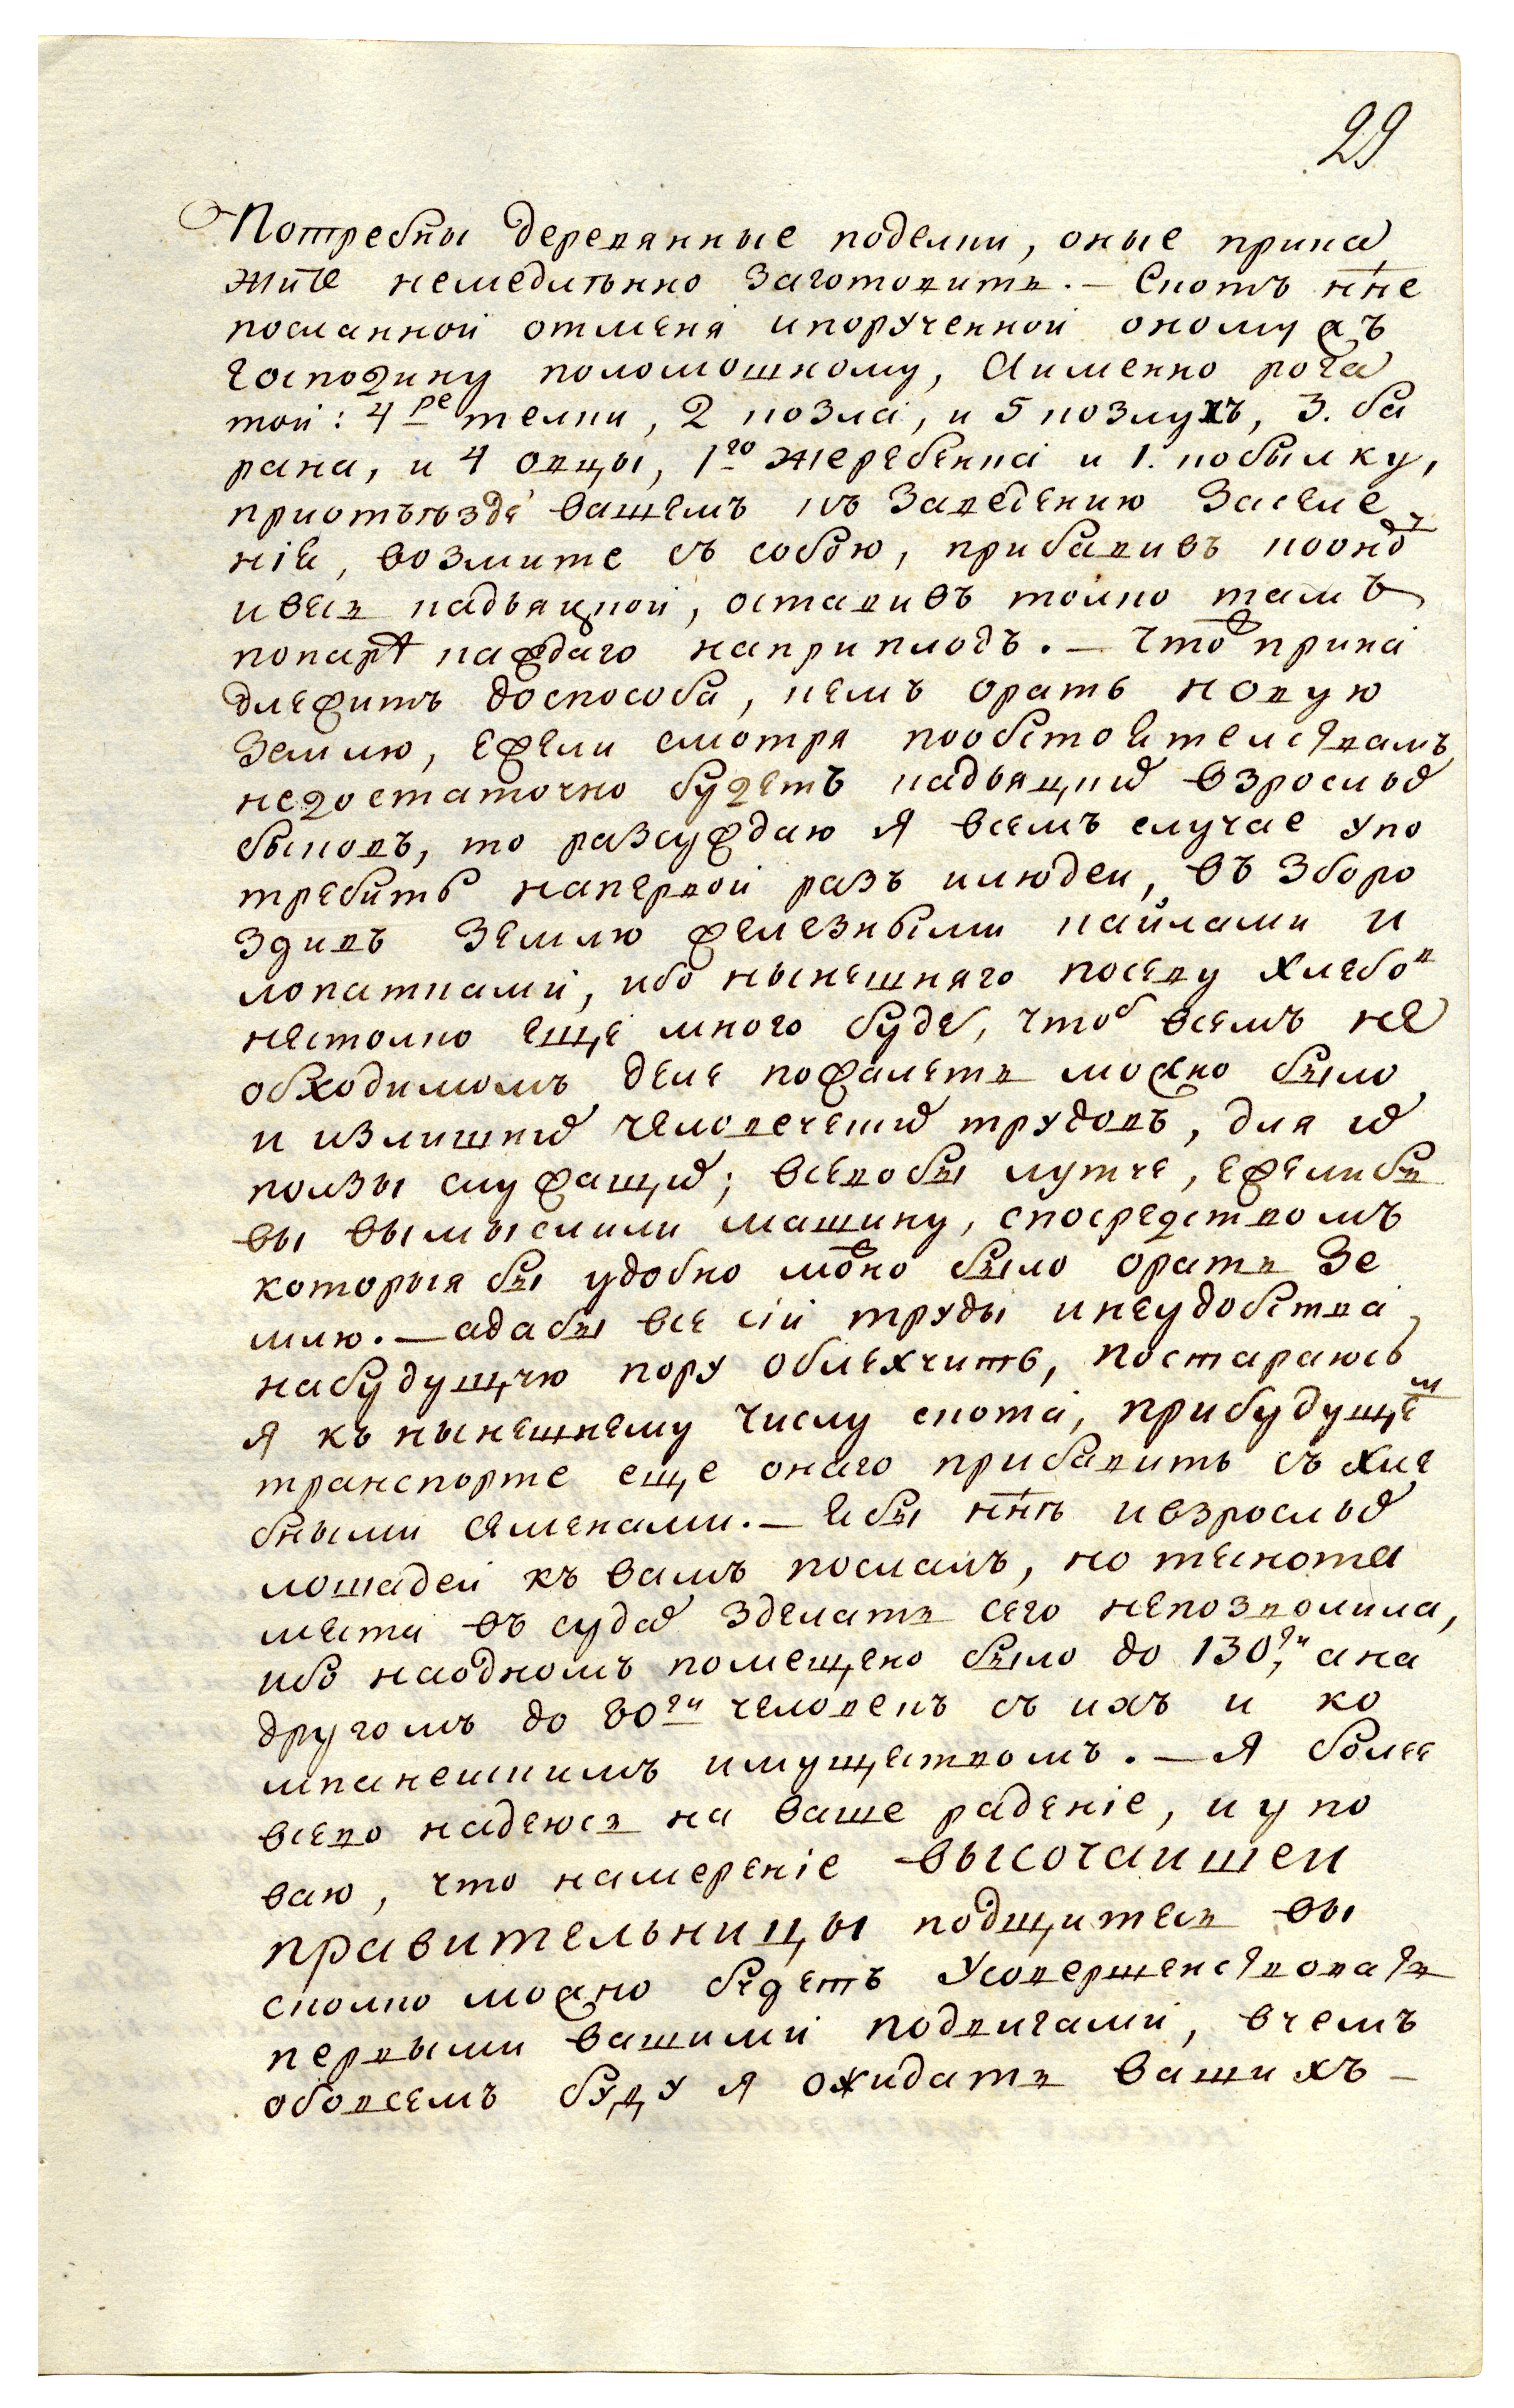 29
Потребны деревянные поделки, оные прика
жите немедлѣнно заготовить. — Скотъ ннѣ
посланной отменя ипорученной ономужъ
господину поломошному, Аименно рога
той: 4ре телки, 2 козла, и 5 козлухъ, 3. ба
рана, и 4 овцы, 1го жеребенка и 1. кобылку,
приотъѣзде вашемъ къ Заведению Заселе
нія, возмите съ собою, прибавивъ поонд
ився кадьяцкой, оставивъ толко тамъ
попарѣ каждаго наприплодъ. — Что прина
длежитъ доспособа, чемъ орать новую
Землю, ежели смотря пообстоятелствамъ
недостаточно будетъ кадьяцкихъ взрослыхъ
быковъ, то разсуждаю я всемъ случае упо
требить напервой разъ илюдеи, въ Зборо
здивъ Землю железными кайлами и
лопатками, ибо нынешняго посеву хлебов
нестолко еще много буде, чтоб всемъ не
обходимомъ деле пожалеть можно было
и излишнихъ человеческихъ трудовъ, для их
ползы служащихъ; всево бы лутче, ежелибы
вы вымыслили машину, спосредствомъ
которыя бы удобно можно было орать Зе
млю. — адабы все сіи труды инеудобства
набудущую пору облехчить, постараюсь
я къ нынешнему числу скота, прибудуще м
транспорте еще онаго прибавить съ хле
бными семенами. — Я бы ннѣ ивзрослыхъ
лошадеи къ вамъ послалъ, но теснота
места въ судахъ зделать сего непозволила,
ибо наодномъ помещено было до 130ти, ана
другомъ до 80ти человекъ съ ихъ и ко
мпанескимъ имуществомъ. — Я более
всево надеюся на ваше раденіе, и упо
ваю, что намереніе высочаишеи
правительницы подщитеся вы
сколко можно будетъ Усовершенствовать
первыми вашими подвигами, вчемъ
обовсемъ буду я ожидать вашихъ —